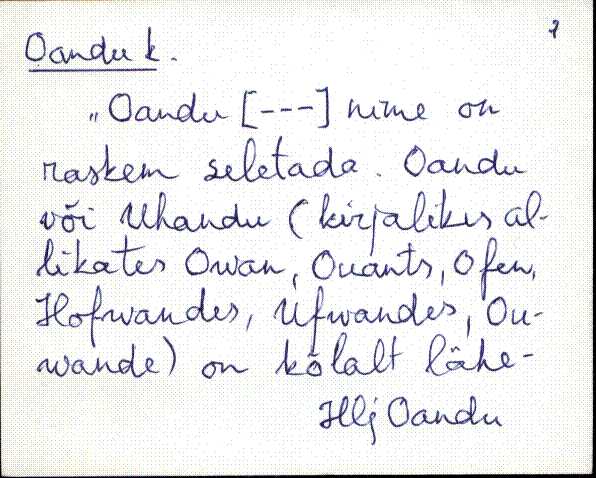 1
Oandu k.
„Oandu [---] nime on
raskem seletada. Oandu
või Uhandu (kirjalikes al-
likates Owan, Ouants, Ofen,
Hofwandes, Ufwandes, Ou-
wande) on kõlalt lähe-
Hlj Oandu